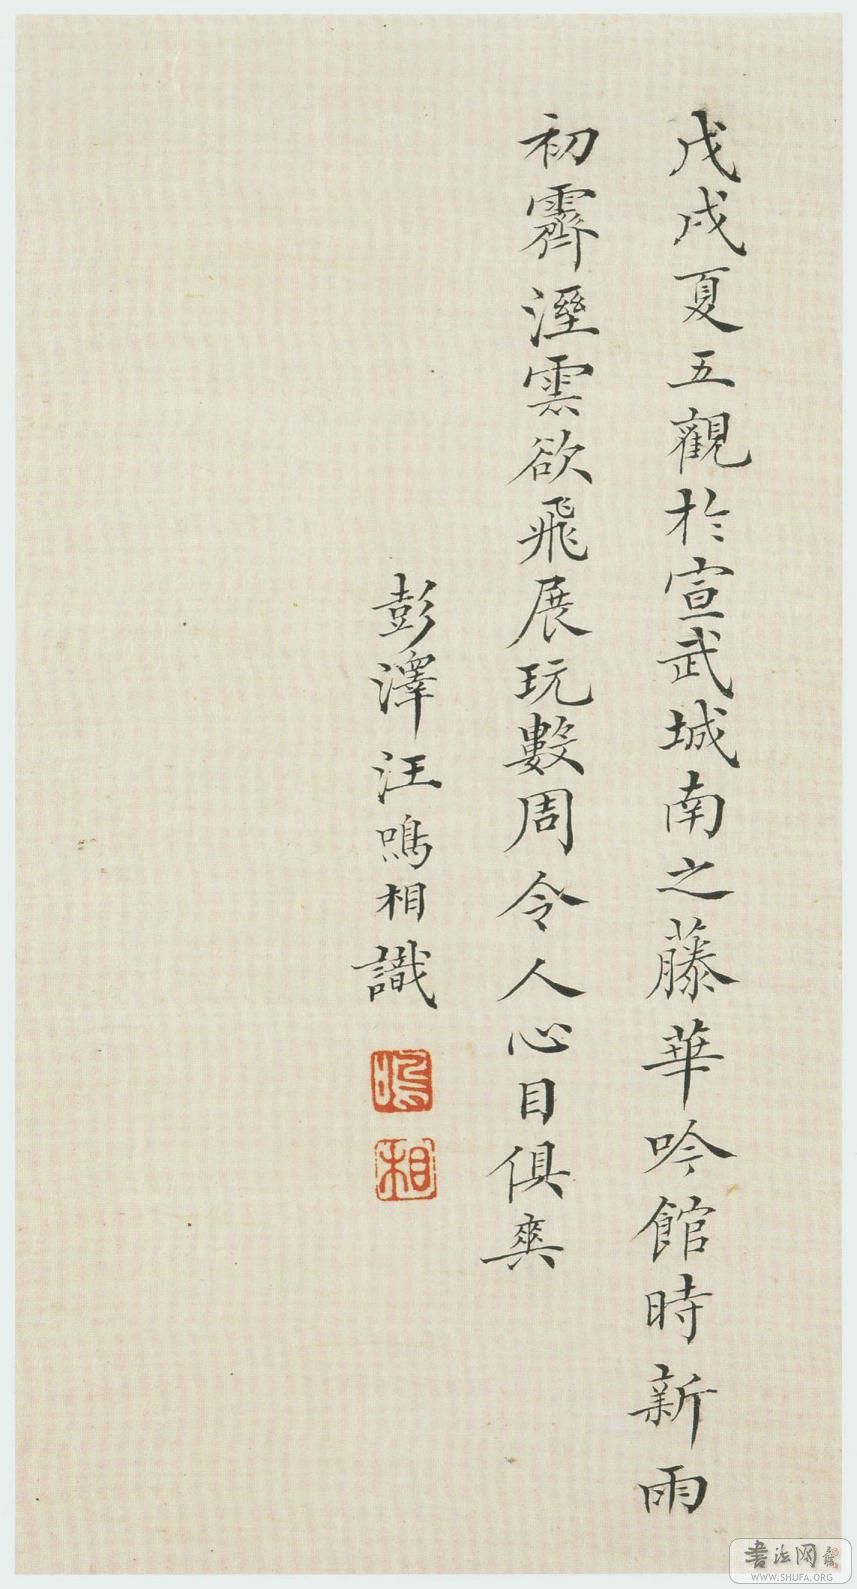 戊戌夏五觀於宣武城南之藤華吟館時新雨
初霽溼雲欲飛展玩數周令人心目俱爽
彭澤汪鳴相識
鳴
相
書法网
WWW.SHUFA.ORG